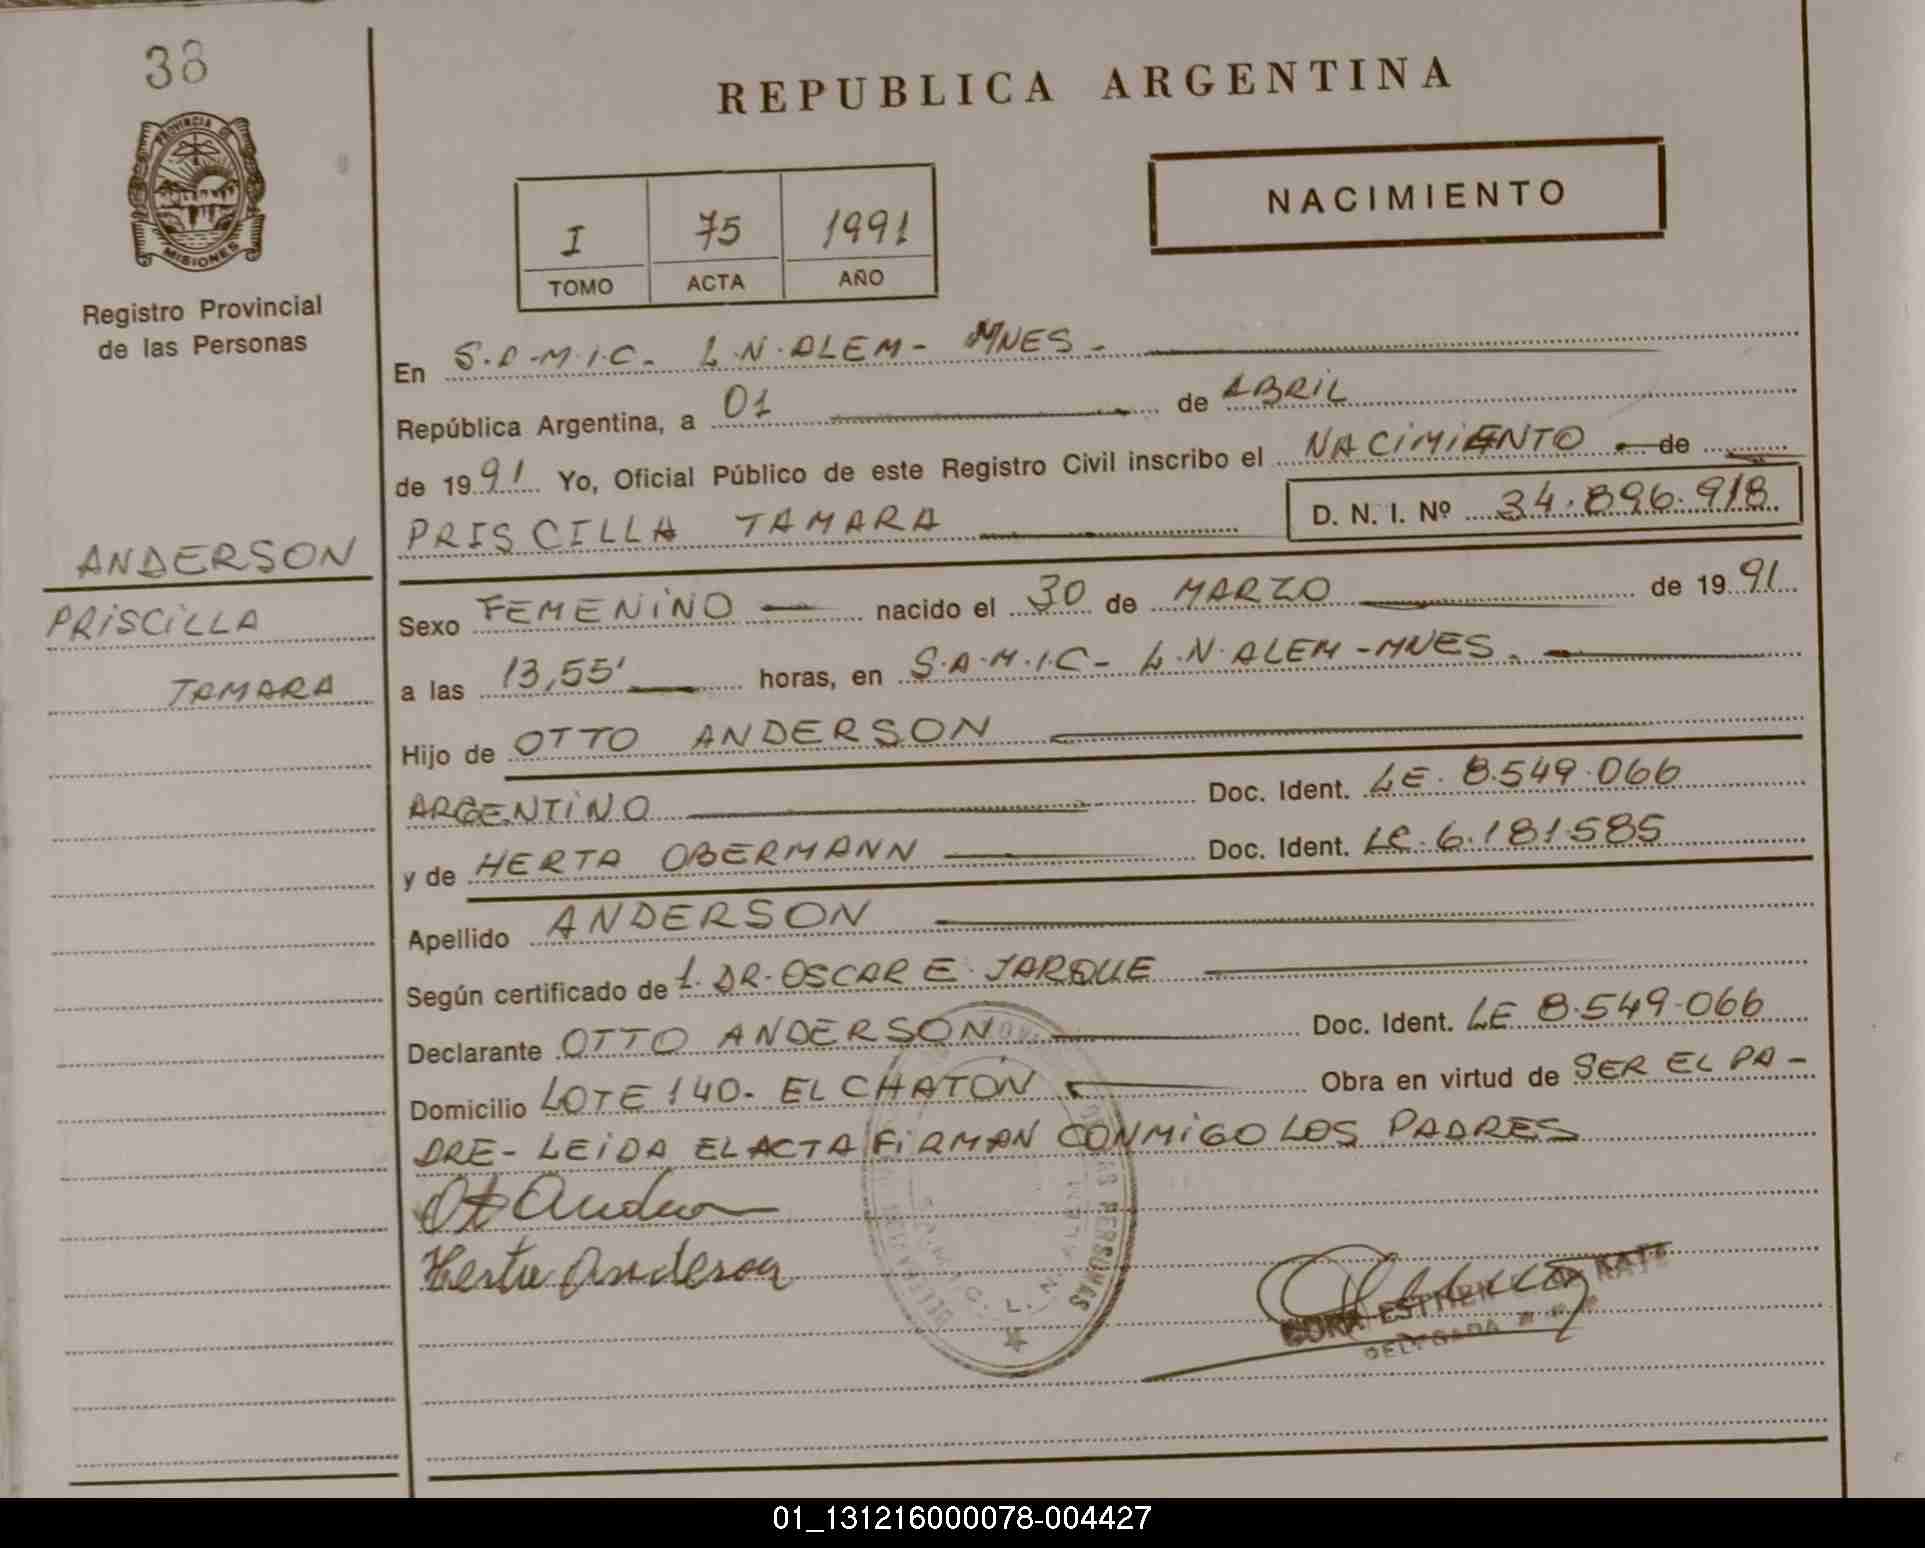 38
PROVINCIA DE
MISIONES
Registro Provincial
de las Personas
ANDERSON
PRISCILLA
TAMARA
REPUBLICA ARGENTINA
I 75 1991
TOMO ACTA AÑO
NACIMIENTO
En S.A.M.I.C. L.N.ALEM- MNES-
República Argentina, a 01 de ABRIL
de 1991 Yo, Oficial Público de este Registro Civil inscribo el NACIMIENTO de
PRISCILLA TAMARA D. N. I. Nº 34.896.918
Sexo FEMENINO nacido el 30 de MARZO de 1991
a las 13,55' horas, en S.A.M.I.C- L.N.ALEM-MNES.
Hijo de OTTO ANDERSON
ARGENTINO Doc. Ident. LE. 8.549.066
y de HERTA OBERMANN Doc. Ident. LC. 6.181.585
Apellido ANDERSON
Según certificado de 1. DR. OSCAR E. JARQUE
Declarante OTTO ANDERSON Doc. Ident. LE 8.549.066
Domicilio LOTE 140- EL CHATON Obra en virtud de SER EL PA-
DRE- LEIDA EL ACTA FIRMAN CONMIGO LOS PADRES
Herta Anderson
PERSONAS
L. N.
ESTHER
DELEGADA
01_131216000078-004427